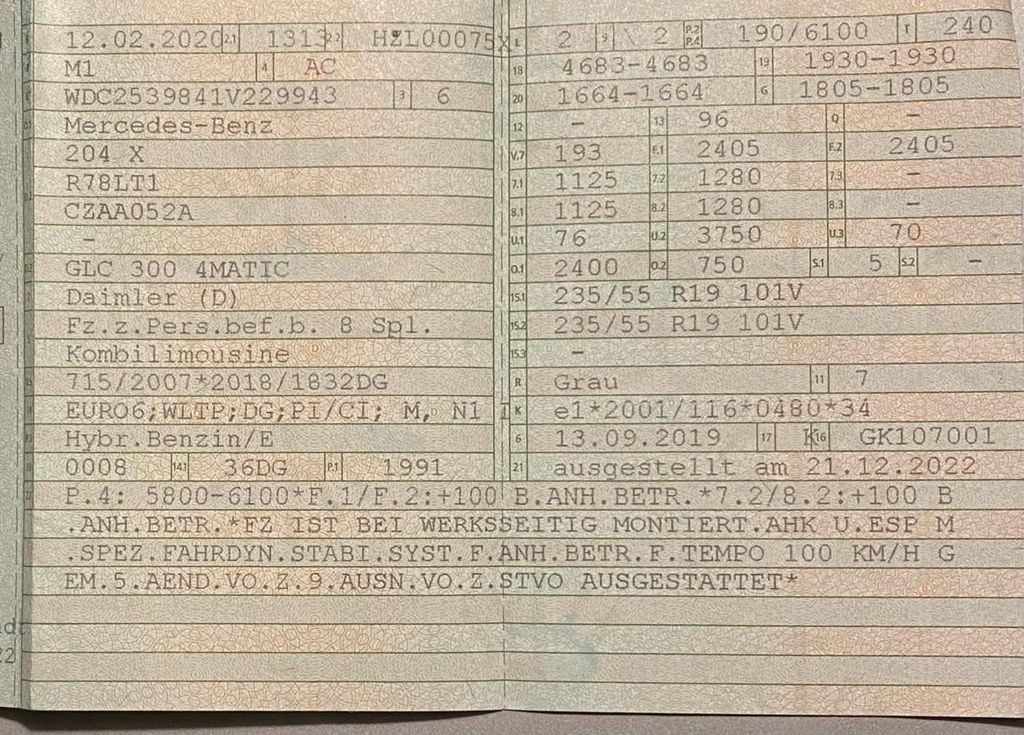 12.02.2020 2.1 1313 2.2 HZL00075X L 2 9 \ 2 P.2 P.4 190/6100 T 240
M1 4 AC 18 4683-4683 19 1930-1930
WDC2539841V229943 3 6 20 1664-1664 G 1805-1805
Mercedes-Benz 12 - 13 96 Q -
204 X V.7 193 F.1 2405 F.2 2405
R78LT1 7.1 1125 7.2 1280 7.3 -
CZAA052A 8.1 1125 8.2 1280 8.3 -
- U.1 76 U.2 3750 U.3 70
GLC 300 4MATIC O.1 2400 O.2 750 S.1 5 S.2 -
Daimler (D) 15.1 235/55 R19 101V
Fz.z.Pers.bef.b. 8 Spl. 15.2 235/55 R19 101V
Kombilimousine 15.3 -
715/2007*2018/1832DG R Grau 11 7
EURO6;WLTP;DG;PI/CI; M, N1 I K e1*2001/116*0480*34
Hybr.Benzin/E 6 13.09.2019 17 K 16 GK107001
0008 14.1 36DG P.1 1991 21 ausgestellt am 21.12.2022
P.4: 5800-6100*F.1/F.2:+100 B.ANH.BETR.*7.2/8.2:+100 B
.ANH.BETR.*FZ IST BEI WERKSSEITIG MONTIERT.AHK U.ESP M
.SPEZ.FAHRDYN.STABI.SYST.F.ANH.BETR.F.TEMPO 100 KM/H G
EM.5.AEND.VO.Z.9.AUSN.VO.Z.STVO AUSGESTATTET*